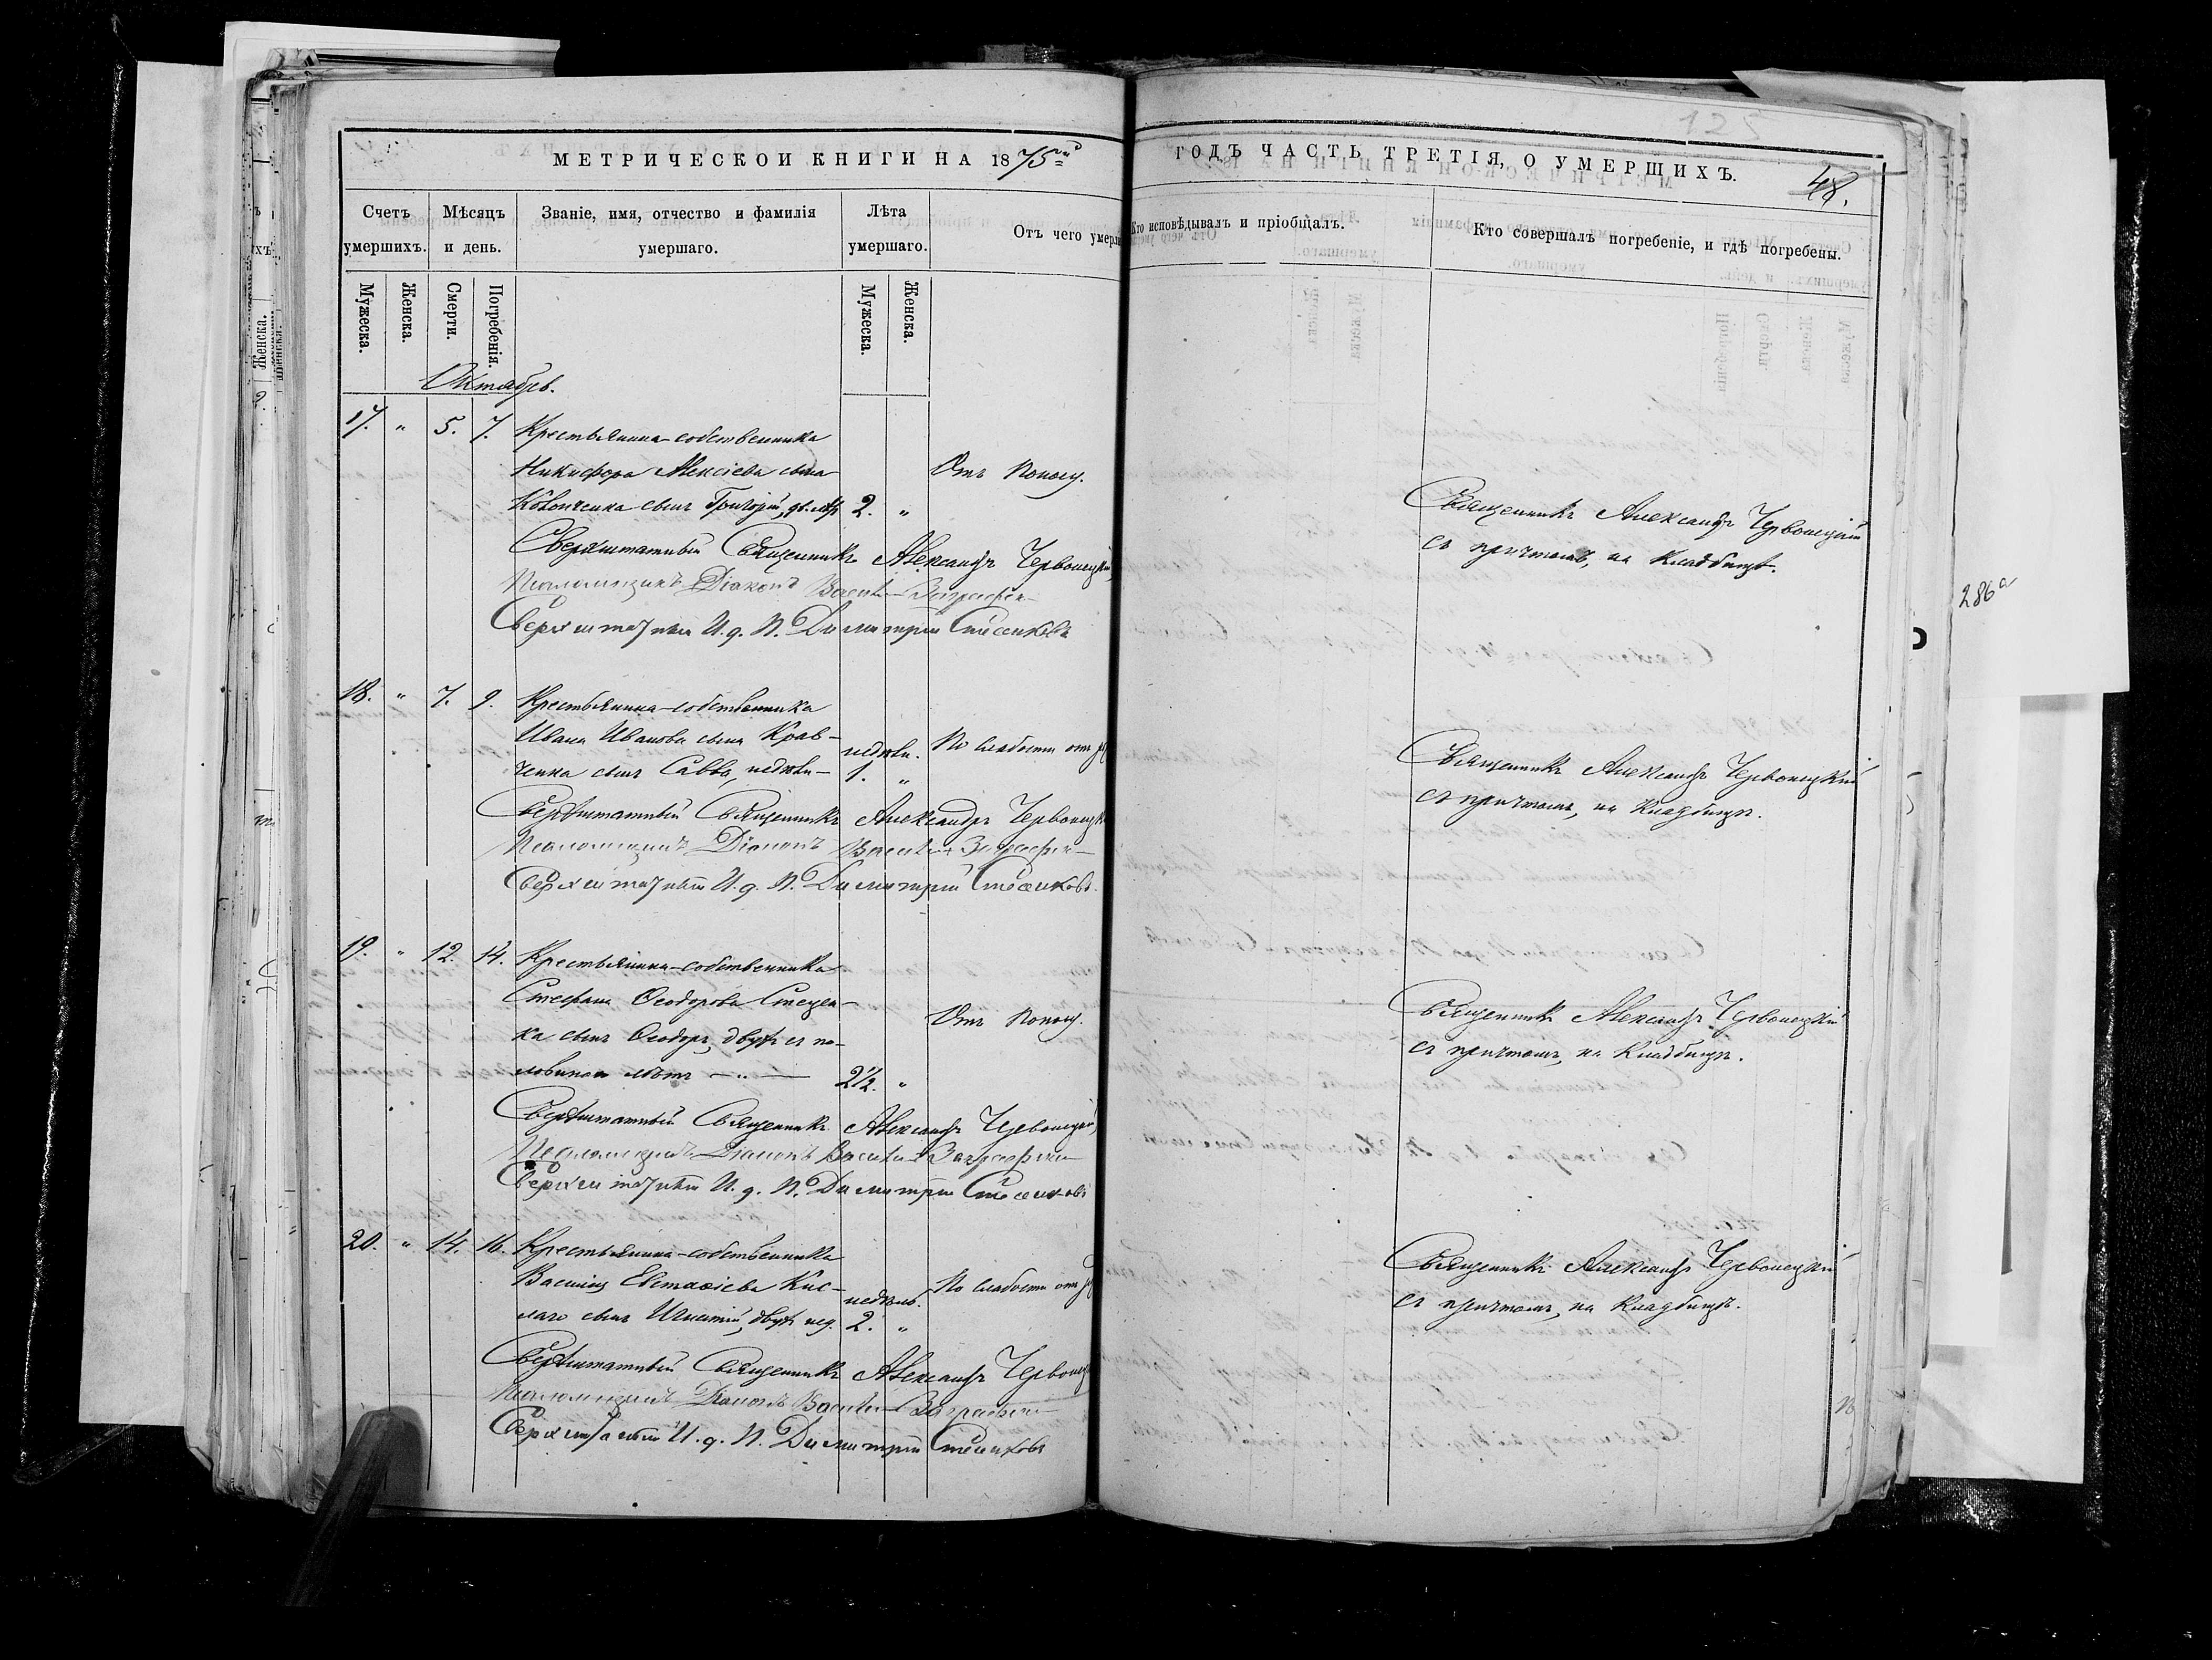 125
МЕТРИЧЕСКОЙ КНИГИ НА 1875ый
ГОДЪ ЧАСТЬ ТРЕТІЯ, О УМЕРШИХЪ.
48.
Счетъ умершихъ.
Мѣсяцъ и день.
Званіе, имя, отчество и фамилія умершаго.
Лѣта умершаго.
Отъ чего умерли
Кто исповѣдывалъ и пріобщалъ.
Кто совершалъ погребеніе, и гдѣ погребены.
Мужеска.
Женска.
Смерти.
Погребенія.
Мужеска.
Женска.
Октябрь.
17. " 5. 7. Крестьянина-собственника
Никифора Алексіева сына Отъ поносу.
сынъ Григорій, 2. "
Священникъ Александръ Червонецкій
съ причтомъ, на кладбищѣ.
Сверхштатный Священникъ Александръ Червонецкій
Псаломщикъ Діаконъ
Сверхштатный И. д. П. Димитрій
286а
18. " 7. 9. Крестьянина-собственника
Ивана Иванова сына Крав-
ченка сынъ Савва, недѣли 1. "
недѣли. По слабости отъ
Священникъ Александръ Червонецкій
съ причтомъ, на кладбищѣ.
Сверхштатный Священникъ Александръ Червонецкій
Псаломщикъ Діаконъ
Сверхштатный И. д. П. Димитрій
19. " 12. 14. Крестьянина-собственника
Стефана Ѳеодорова Стецен-
ка сынъ Ѳеодоръ, двухъ съ по- Отъ поносу.
ловиною лѣтъ 2½. "
Священникъ Александръ Червонецкій
съ причтомъ, на кладбищѣ.
Сверхштатный Священникъ Александръ Червонецкій
Псаломщикъ Діаконъ
Сверхштатный И. д. П. Димитрій
20. " 14. 16. Крестьянина-собственника
Василія Евстафіева Кис-
лаго сынъ Игнатій, двухъ нед. 2. "
недѣль. По слабости отъ
Священникъ Александръ Червонецкій
съ причтомъ, на кладбищѣ.
Сверхштатный Священникъ Александръ
Псаломщикъ Діаконъ
Сверхштатный И. д. П. Димитрій